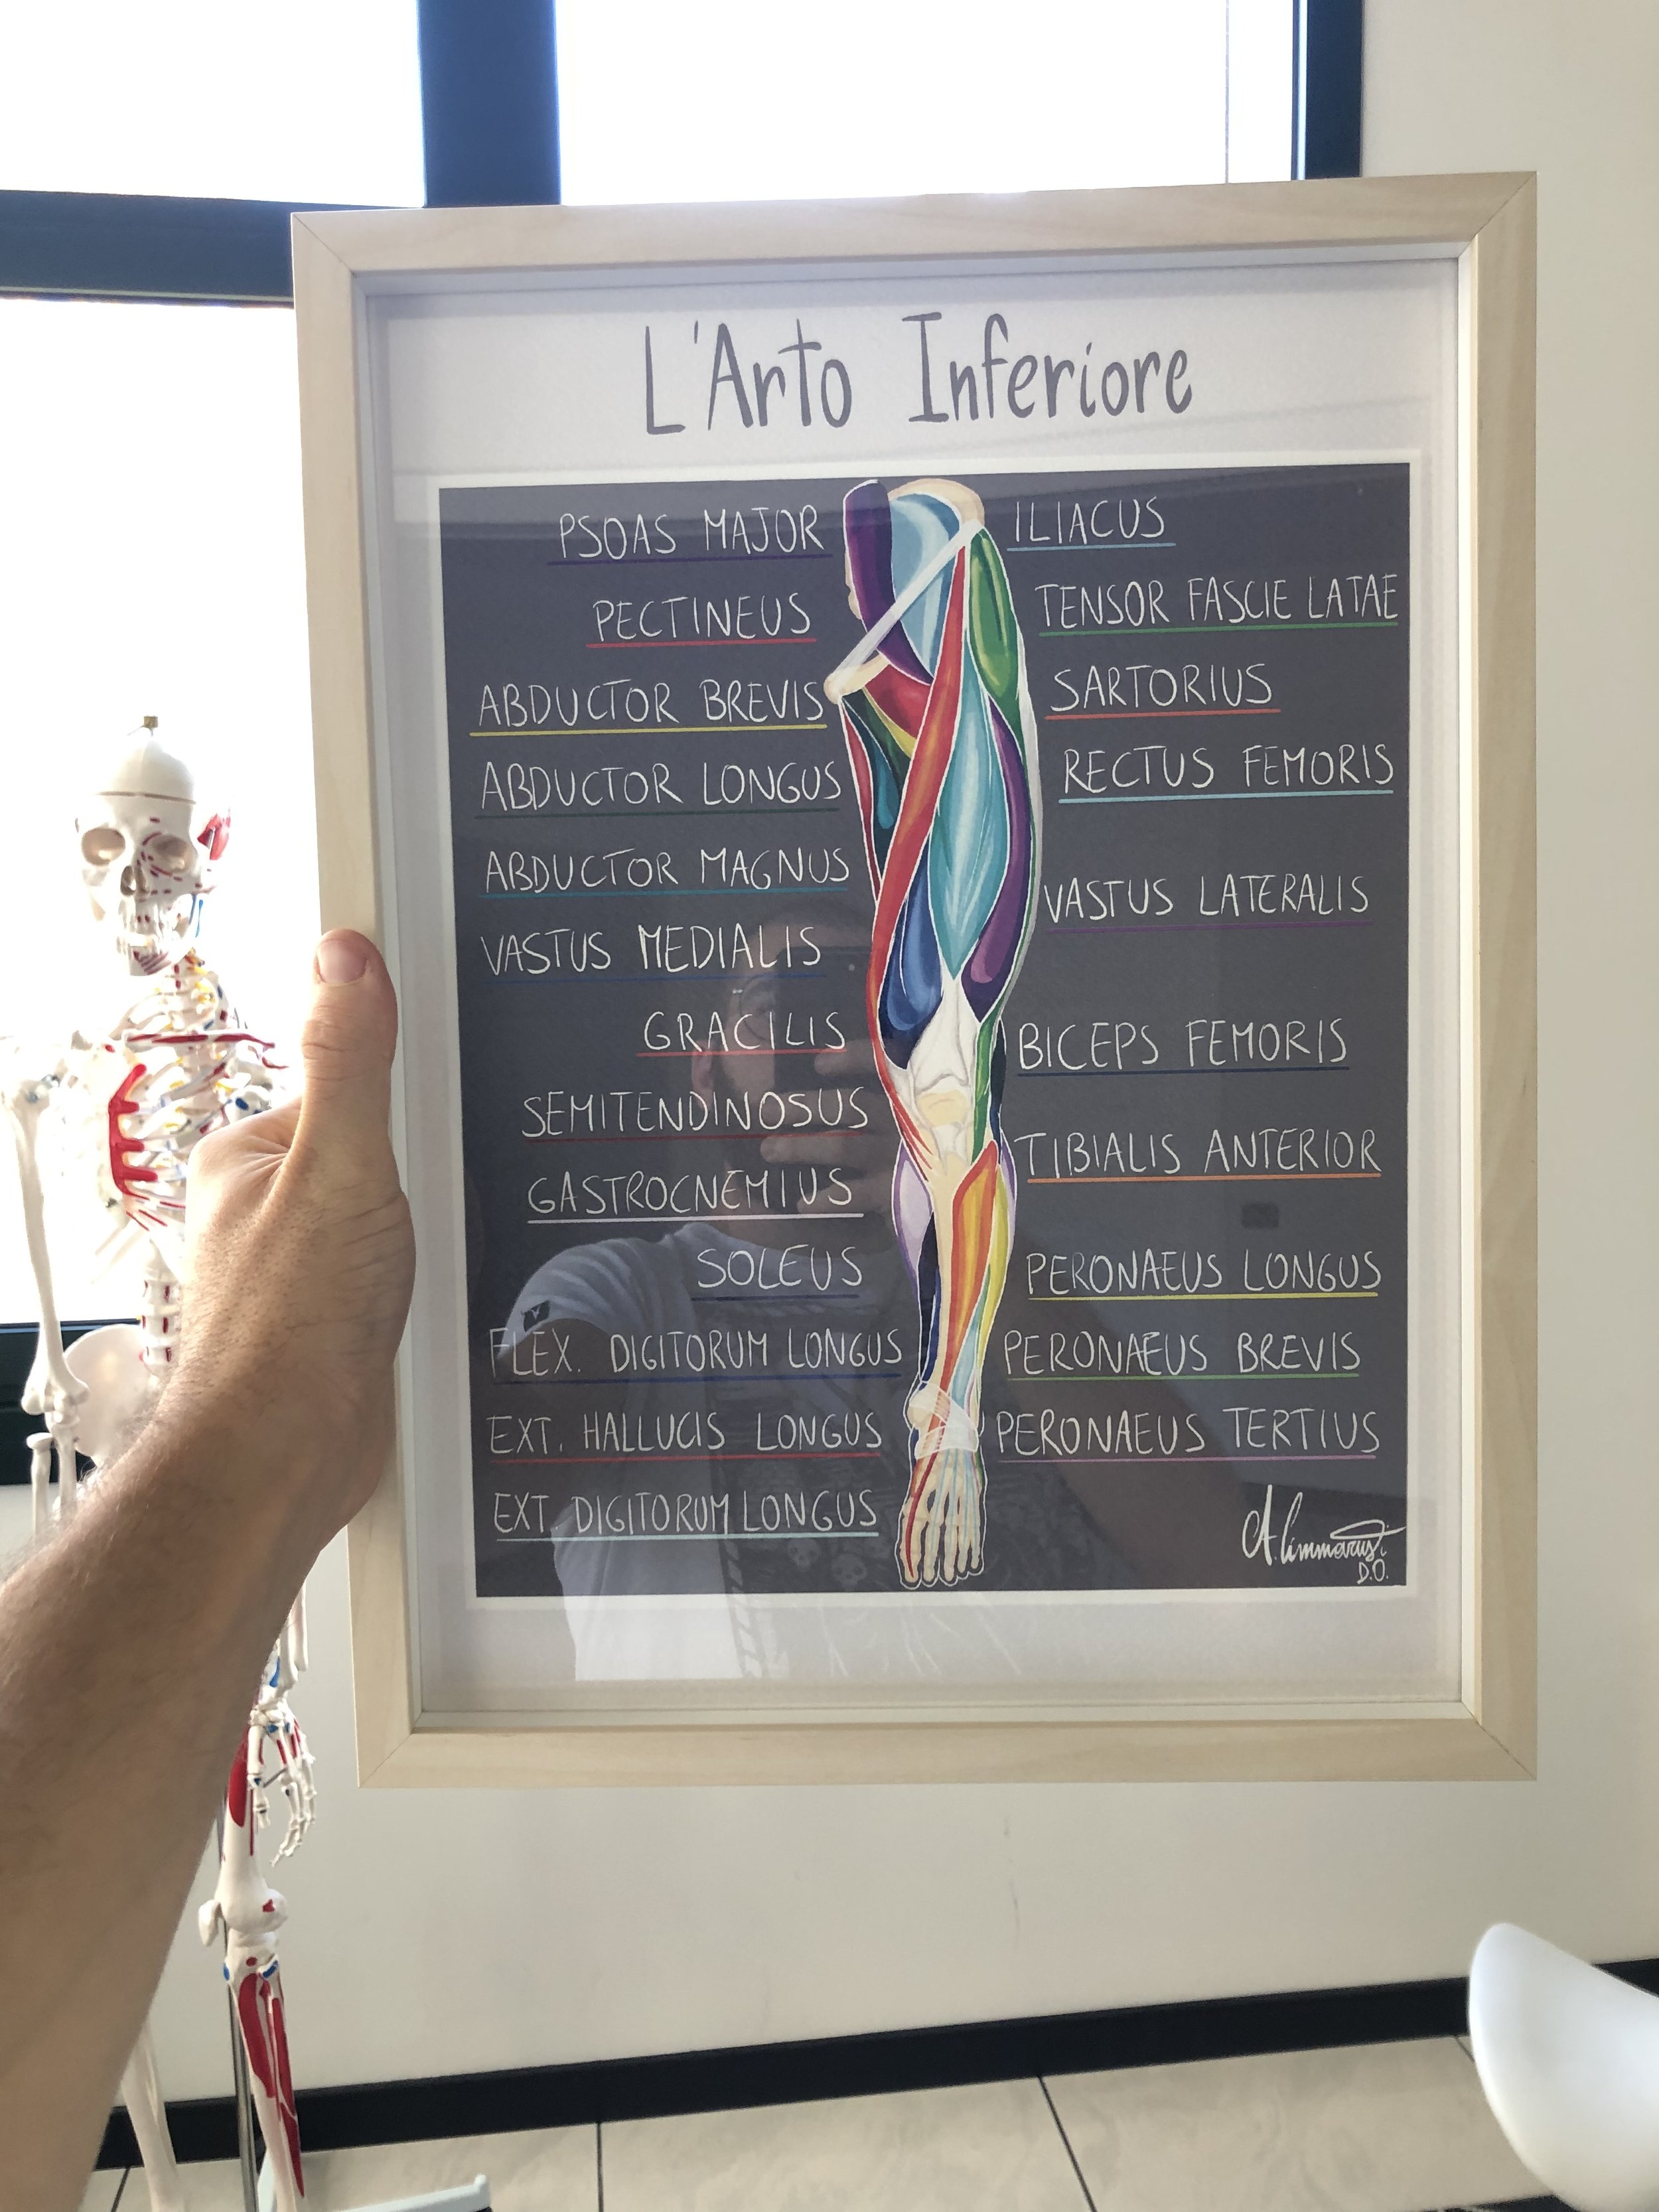 L'Arto Inferiore
PSOAS MAJOR
PECTINEUS
ABDUCTOR BREVIS
ABDUCTOR LONGUS
ABDUCTOR MAGNUS
VASTUS MEDIALIS
GRACILIS
SEMITENDINOSUS
GASTROCNEMIUS
SOLEUS
FLEX. DIGITORUM LONGUS
EXT. HALLUCIS LONGUS
EXT. DIGITORUM LONGUS
ILIACUS
TENSOR FASCIE LATAE
SARTORIUS
RECTUS FEMORIS
VASTUS LATERALIS
BICEPS FEMORIS
TIBIALIS ANTERIOR
PERONAEUS LONGUS
PERONAEUS BREVIS
PERONAEUS TERTIUS
D.O.